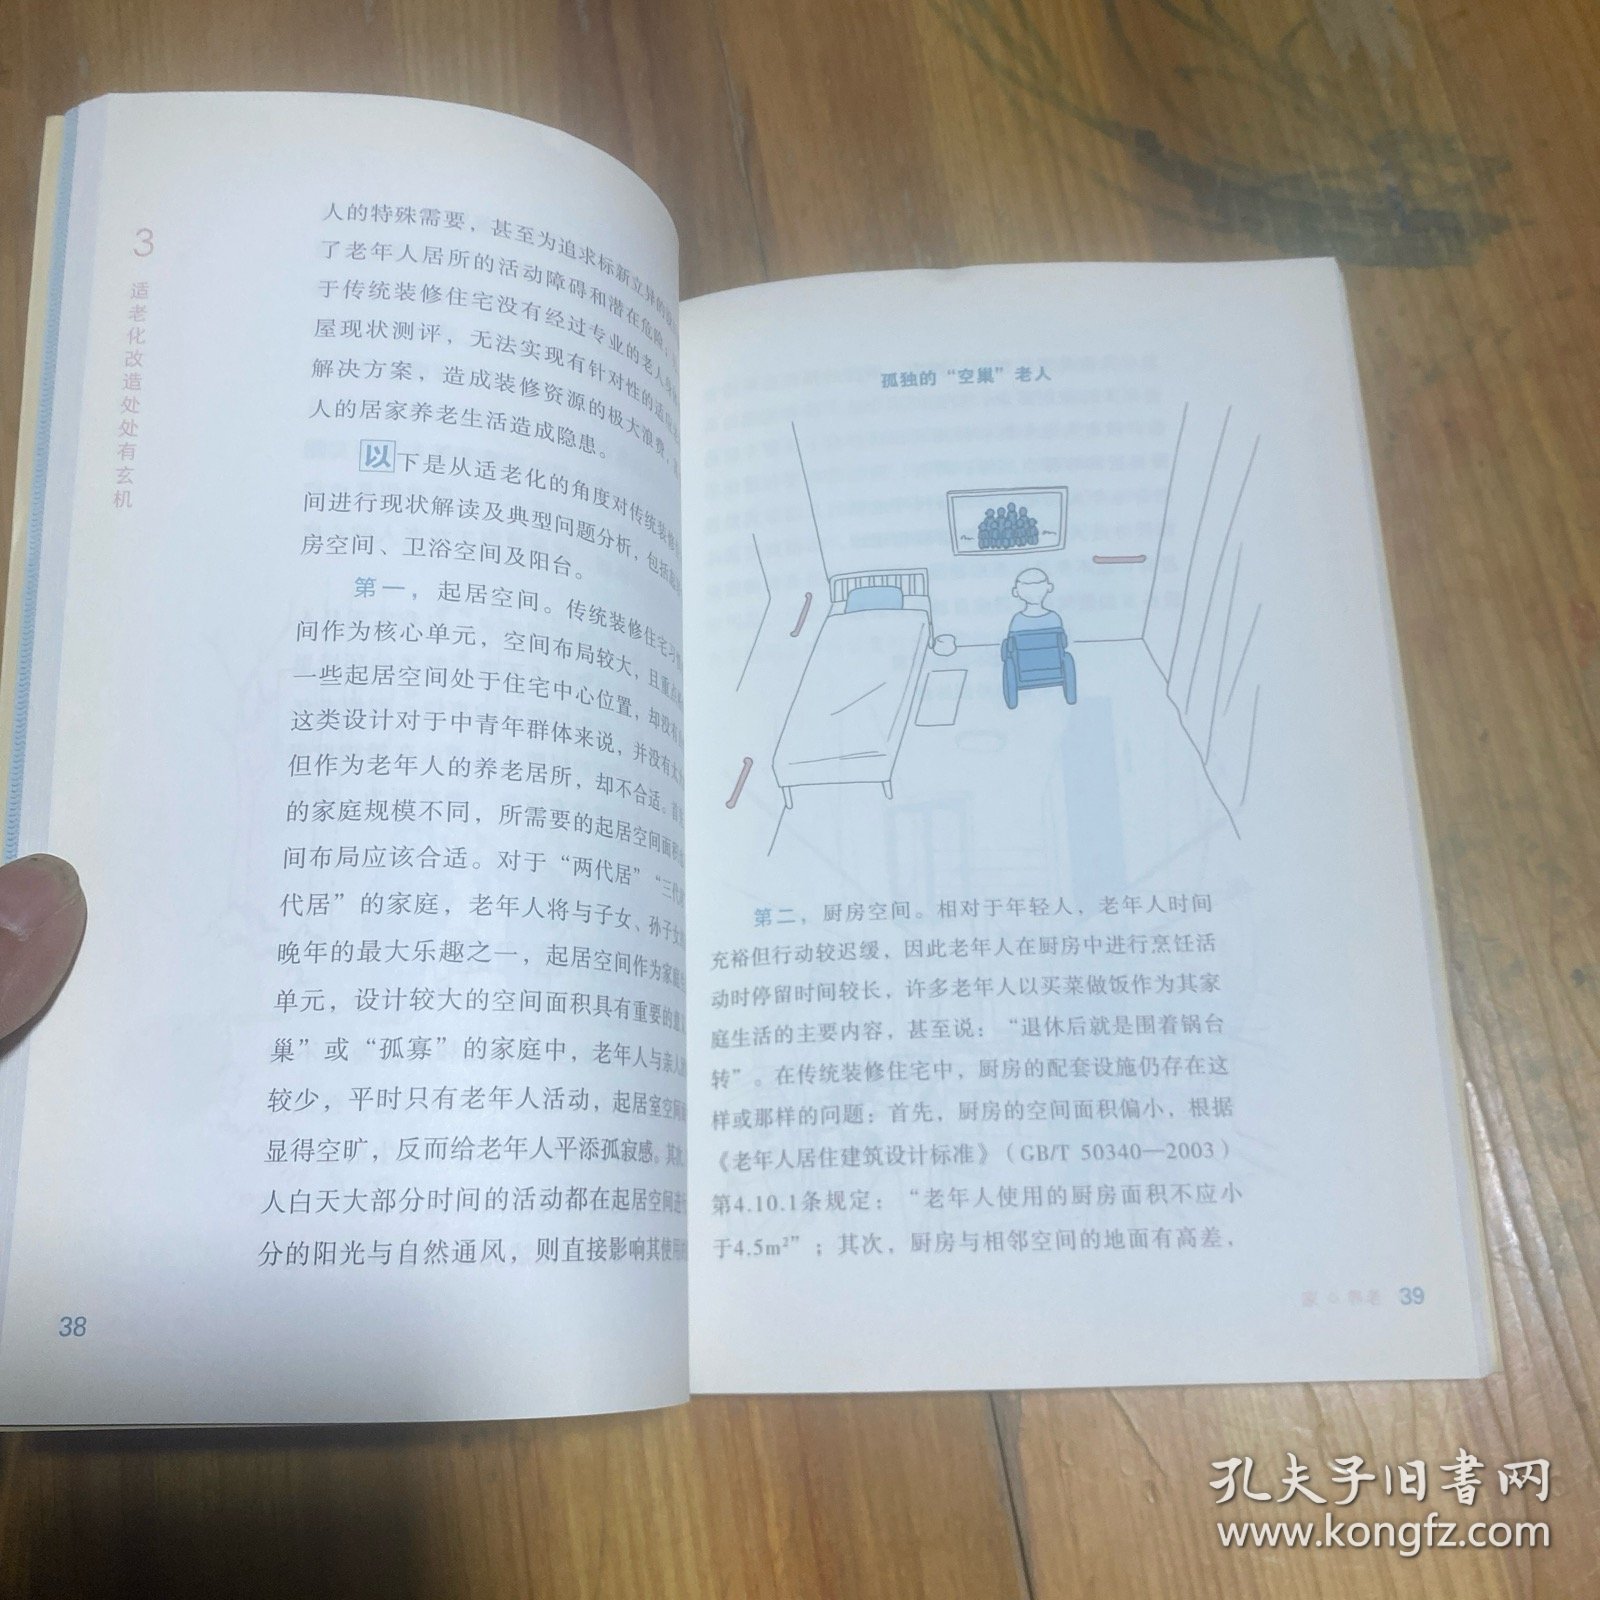 3
适老化改造处处有玄机
人的特殊需要，甚至为追求标新立异的
了老年人居所的活动障碍和潜在危险，
于传统装修住宅没有经过专业的老人身
屋现状测评，无法实现有针对性的适
解决方案，造成装修资源的极大浪费，
人的居家养老生活造成隐患。
以下是从适老化的角度对传统装修
间进行现状解读及典型问题分析，包括起
房空间、卫浴空间及阳台。
第一，起居空间。传统装修住宅习
间作为核心单元，空间布局较大，且重点
一些起居空间处于住宅中心位置，却没有
这类设计对于中青年群体来说，并没有太
但作为老年人的养老居所，却不合适。首
的家庭规模不同，所需要的起居空间面积
间布局应该合适。对于“两代居”“三代
代居”的家庭，老年人将与子女、孙子女
晚年的最大乐趣之一，起居空间作为家庭
单元，设计较大的空间面积具有重要的意
巢”或“孤寡”的家庭中，老年人与亲人
较少，平时只有老年人活动，起居室空间
显得空旷，反而给老年人平添孤寂感。其次，
人白天大部分时间的活动都在起居空间进
分的阳光与自然通风，则直接影响其使用
38
孤独的“空巢”老人
第二，厨房空间。相对于年轻人，老年人时间
充裕但行动较迟缓，因此老年人在厨房中进行烹饪活
动时停留时间较长，许多老年人以买菜做饭作为其家
庭生活的主要内容，甚至说：“退休后就是围着锅台
转”。在传统装修住宅中，厨房的配套设施仍存在这
样或那样的问题：首先，厨房的空间面积偏小，根据
《老年人居住建筑设计标准》（GB/T 50340—2003）
第4.10.1条规定：“老年人使用的厨房面积不应小
于4.5m²”；其次，厨房与相邻空间的地面有高差，
39
孔夫子旧书网
www.kongfz.com